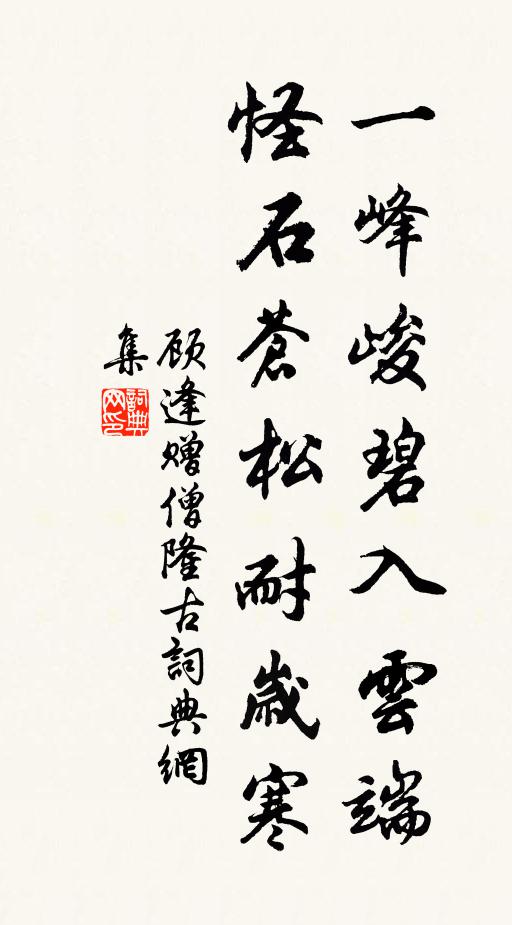 一峰峻碧入雲端
怪石蒼松耐歲寒
顧逢贈僧隆古詞典網
集
詞典网印